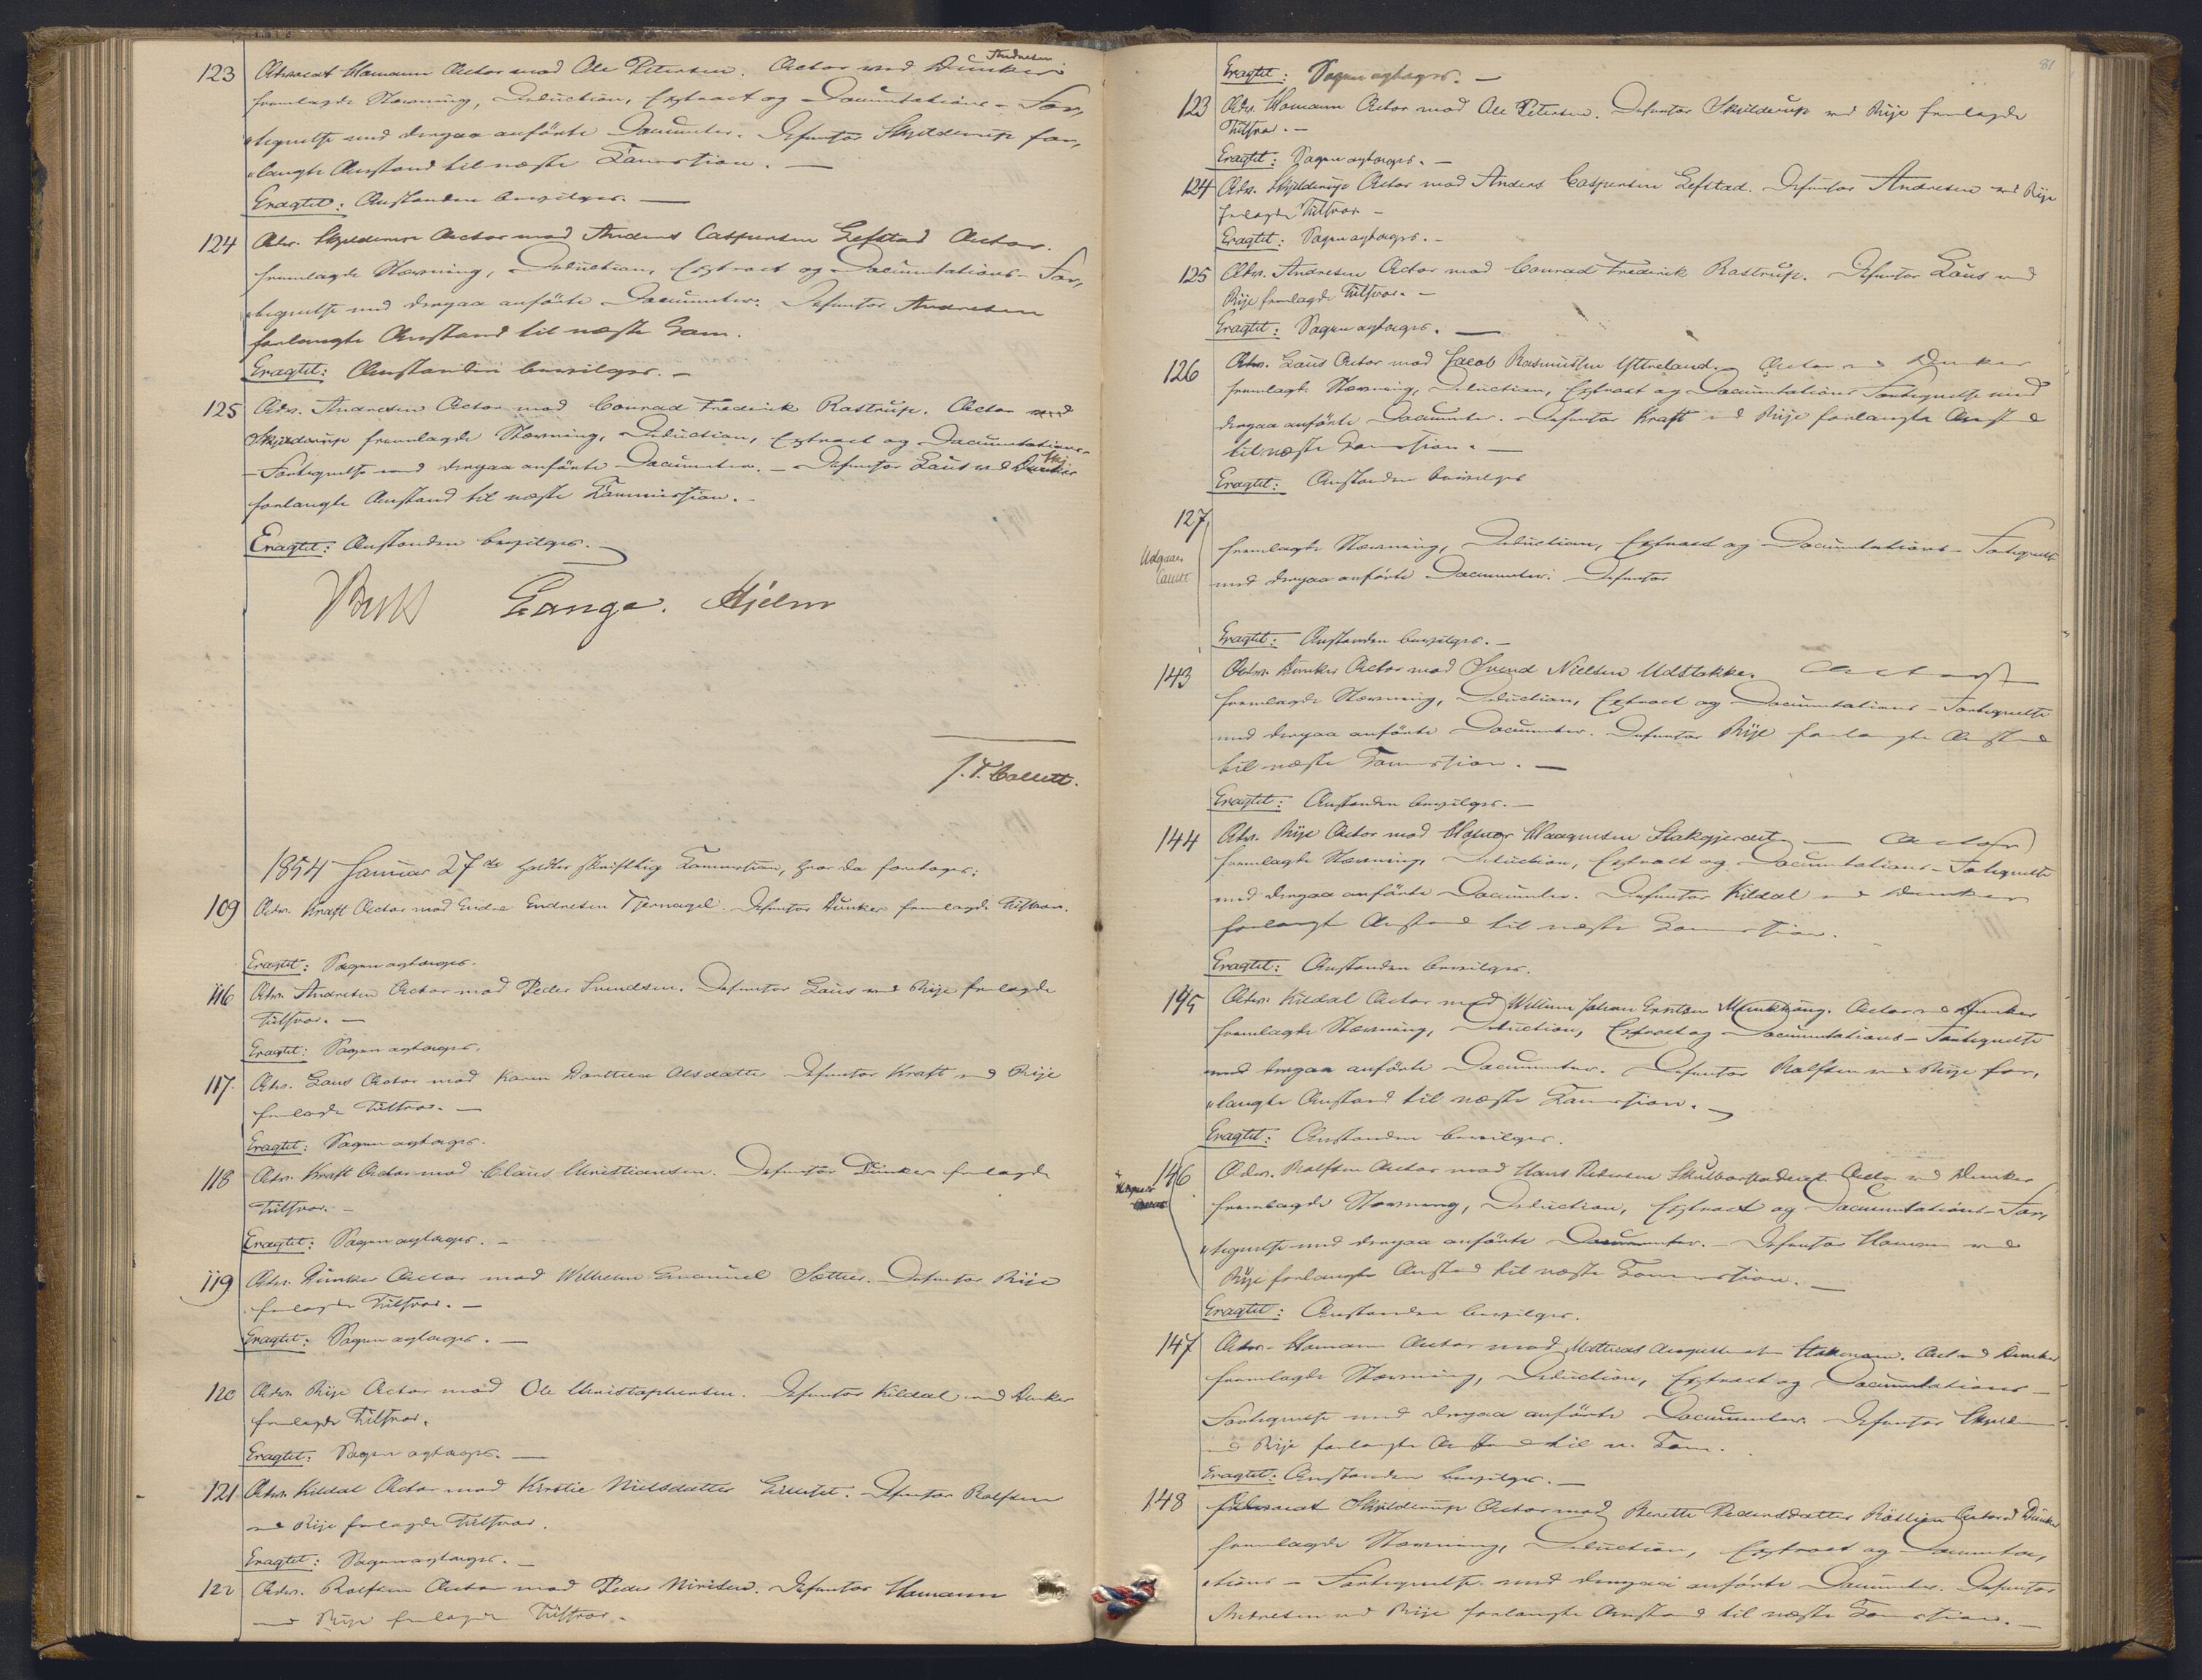 123 Advocat Hamann Actor mod Ole Petersen. Actor ved Dunker Andresen
fremlagde Stævning, Deduction, Extract og Documentations-For,
"tegnelse med derpaa anförte Documenter. Defensor Skjelderup for,
"langte Anstand til næste Session. —
Eragtet: Anstanden bevilges. —
124 Adv. Skjelderup Actor mod Anders Caspersen Lefstad Actor.
fremlagde Stævning, Deduction, Extract og Documentations-For,
"tegnelse med derpaa anförte Documenter. Defensor Andresen
forlangte Anstand til næste Sam.
Eragtet: Anstanden bevilges. —
125 Adv. Andresen Actor mod Conrad Frederik Rastrup. Actor ved
Skjelderup fremlagde Stævning, Deduction, Extract og Documentations-
-Fortegnelse med derpaa anförte Documenter. — Defensor Laus ved Dunker
forlangte Anstand til næste Session. —
Eragtet: Anstanden bevilges. —
Lange. Hjelm
J. F. Collett.
1854 Januar 27de holdtes skriftlig Session, hvor da foretoges:
109 Adv. Kraft Actor mod Endre Endresen Tjernagel. Defensor Dunker fremlagde Tilsvar.
Eragtet: Sagen optages.
116 Adv. Andresen Actor mod Peder Svendsen. Defensor Laus ved Rije fremlagde
Tilsvar. —
Eragtet: Sagen optages.
117. Adv. Laus Actor mod Karen Dorthea Olsdatter Defensor Kraft ved Rije
fremlagde Tilsvar. —
Eragtet: Sagen optages.
118 Adv. Kraft Actor mod Claus Christiansen. Defensor Dunker fremlagde
Tilsvar. —
Eragtet: Sagen optages. —
119 Adv. Dunker Actor mod Wilhelm Emanuel Sætter. Defensor Rije
fremlagde Tilsvar. —
Eragtet: Sagen optages. —
120 Adv. Rije Actor mod Ole Christophersen. Defensor Kildal ved Dunker
fremlagde Tilsvar.
Eragtet: Sagen optages. —
121 Adv. Kildal Actor mod Kirstie Nielsdatter. Defensor Rolfsen
ved Rije fremlagde Tilsvar.
Eragtet: Sagen optages. —
122 Adv. Rolfsen Actor mod Peder. Defensor Hamann
ved Rije fremlagde Tilsvar. —
81
Eragtet: Sagen optages. —
123 Adv. Hamann Actor mod Ole Petersen. Defensor Skjelderup ved Rije fremlagde
Tilsvar. —
Eragtet: Sagen optages. —
124 Adv. Skjelderup Actor mod Anders Caspersen Lefstad. Defensor Andresen ved Rije
fremlagde Tilsvar —
Eragtet: Sagen optages. —
125 Adv. Andresen Actor mod Conrad Frederik Rastrup. Defensor Laus ved
Rije fremlagde Tilsvar. —
Eragtet: Sagen optages. —
126 Adv. Laus Actor mod Jacob Rasmussen Ytreland. Actor ved Dunker
fremlagde Stævning, Deduction, Extract og Documentations Fortegnelse med
derpaa anförte Documenter. Defensor Kraft ved Rije forlangte Anstand
til næste Session. —
Eragtet: Anstanden bevilges
127
fremlagde Stævning, Deduction, Extract og Documentations-Fortegnelse
Udgaar
med derpaa anförte Documenter. Defensor
Eragtet: Anstanden bevilges. —
143 Adv. Dunker Actor mod Svend Nielsen Udstakke. Actor
fremlagde Stævning, Deduction, Extract og Documentations-Fortegnelse
med derpaa anförte Documenter. Defensor Rije forlangte Anstand
til næste Session. —
Eragtet: Anstanden bevilges. —
144 Adv. Rije Actor mod Haagensen Stakgjerdet — Actor
fremlagde Stævning, Deduction, Extract og Documentations-Fortegnelse
med derpaa anförte Documenter. Defensor Kildal ved Dunker
forlangte Anstand til næste Session.
Eragtet: Anstanden bevilges.
145 Adv. Kildal Actor mod Willum Johan Erntsen. Actor ved Dunker
fremlagde Stævning, Deduction, Extract og Documentations-Fortegnelse
med derpaa anförte Documenter. Defensor Rolfsen ved Rije for,
"langte Anstand til næste Session. —
Eragtet: Anstanden bevilges.
146 Adv. Rolfsen Actor mod Hans Pedersen. Actor ved Dunker
fremlagde Stævning, Deduction, Extract og Documentations-For,
"tegnelse med derpaa anförte Documenter. — Defensor Hamann ved
Rije forlangte Anstand til næste Session. —
Eragtet: Anstanden bevilges.
147 Adv. Hamann Actor mod Mathias. Act. ved Dunker
fremlagde Stævning, Deduction, Extract og Documentations-
Fortegnelse med derpaa anförte Documenter. Defensor Skjeld
ved Rije forlangte Anstand til n. Sam.
Eragtet: Anstanden bevilges. —
148 Advocat Skjelderup Actor mod Berette Pedersdatter. Actor ved Dunker
fremlagde Stævning, Deduction, Extract og Documenta,
"tions-Fortegnelse med derpaa anförte Documenter. Defensor
Andresen ved Rije forlangte Anstand til næste Session. —